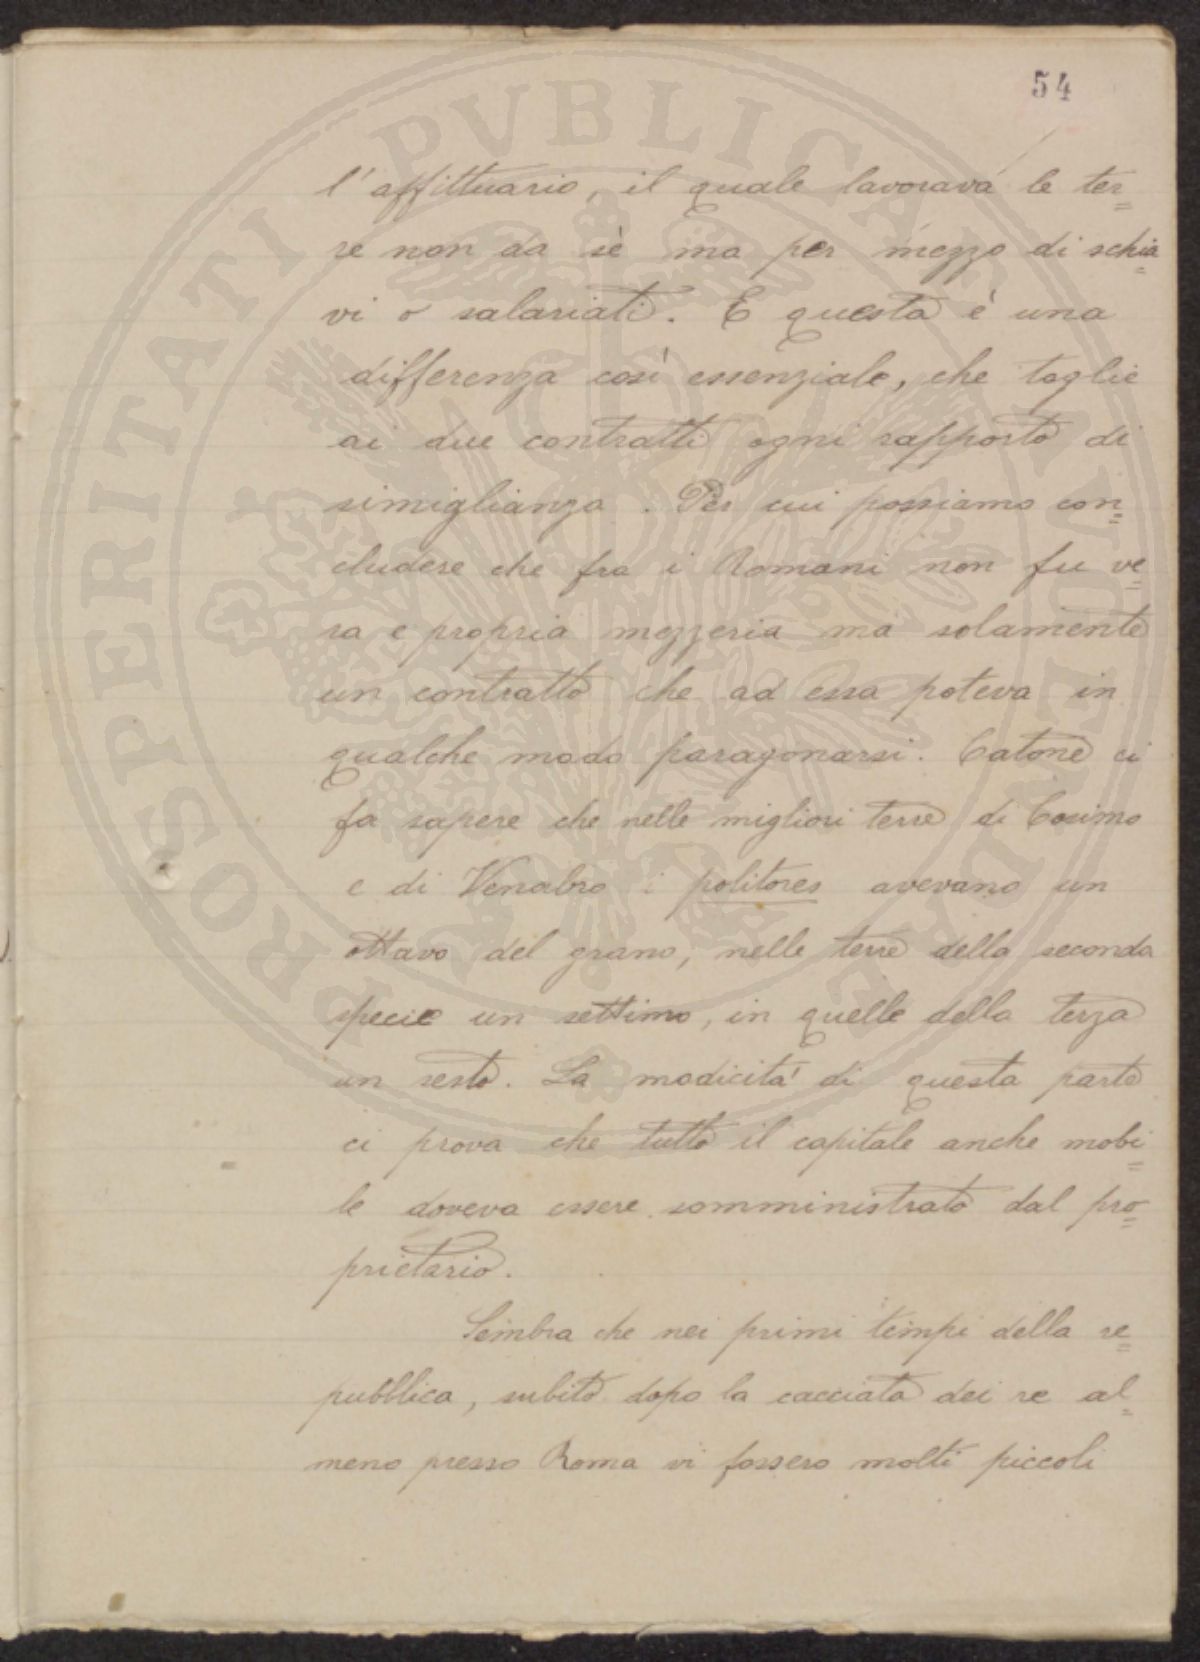 54
l'affittuario, il quale lavorava le ter=
re non da sè ma per mezzo di schia=
vi o salariati. E questa è una
differenza così essenziale, che toglie
ai due contratti ogni rapporto di
simiglianza. Per cui possiamo con=
cludere che fra i Romani non fu ve=
ra e propria mezzeria ma solamente
un contratto che ad essa poteva in
qualche modo paragonarsi. Catone ci
fa sapere che nelle migliori terre di Cosimo
e di Venabro i politores avevano un
ottavo del grano, nelle terre della seconda
specie un settimo, in quelle della terza
un sesto. La modicità di questa parte
ci prova che tutto il capitale anche mobi=
le doveva essere somministrato dal pro=
prietario.
Sembra che nei primi tempi della re=
pubblica, subito dopo la cacciata dei re al=
meno presso Roma vi fossero molti piccoli
PROSPERITATI PVBLICAE AVGENDAE